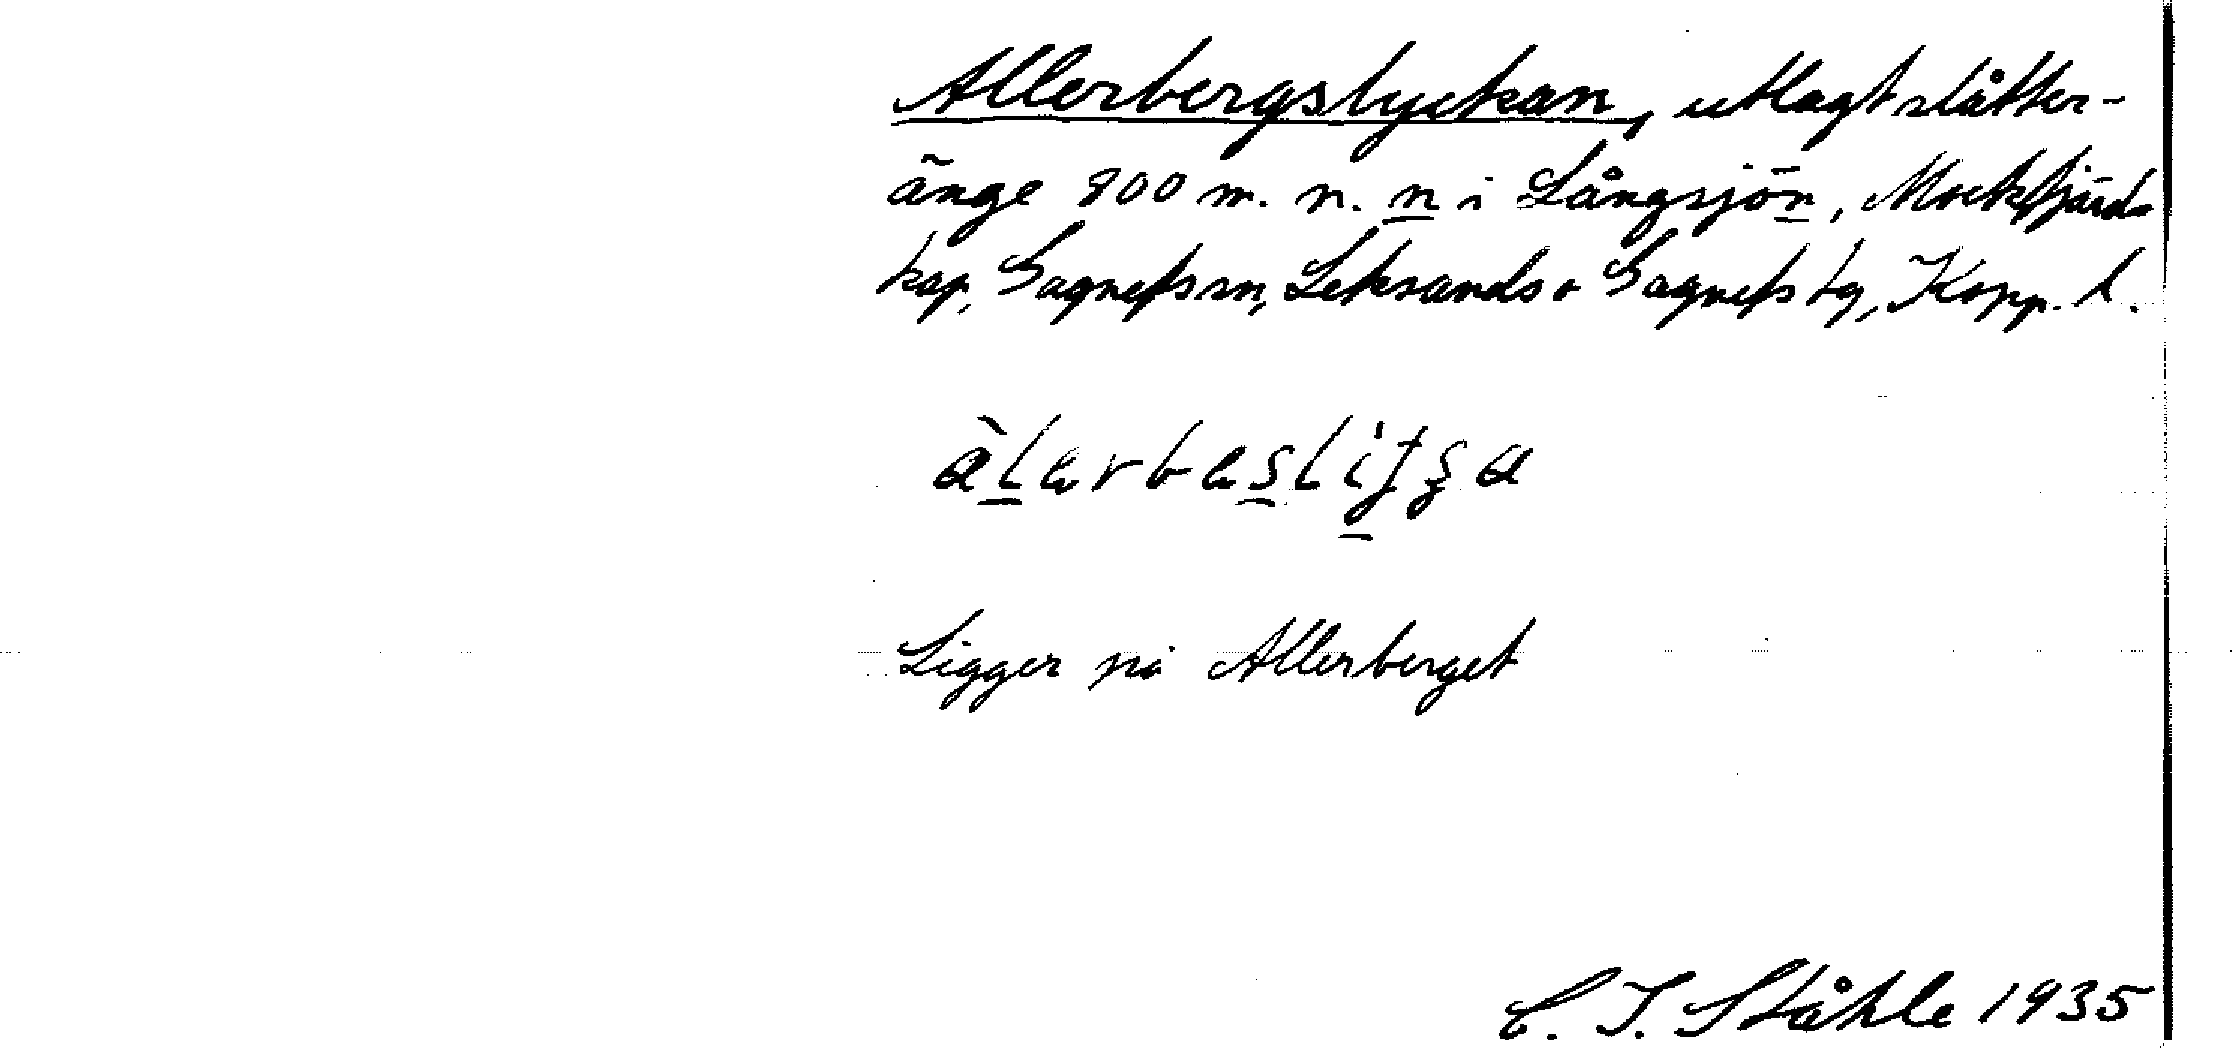 Allerbergslyckan, utlagt slåtter-
änge 800 m. n. n i Långsjön, Mockfjärds
kap, Gagnefs sn, Leksands o Gagnefs tg, Kopp. l.
Ligger på Allerberget
C. I. Ståhle 1935